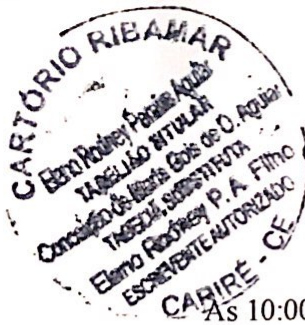 CARTÓRIO RIBAMAR
Elmo Rodney Pereira Aguiar
TABELIÃO TITULAR
Conceição de Maria Gois de O. Aguiar
TABELIÃ SUBSTITUTA
Elmo Rodney P. A. Filho
ESCREVENTE AUTORIZADO
CARIRÉ - CE
As 10:00